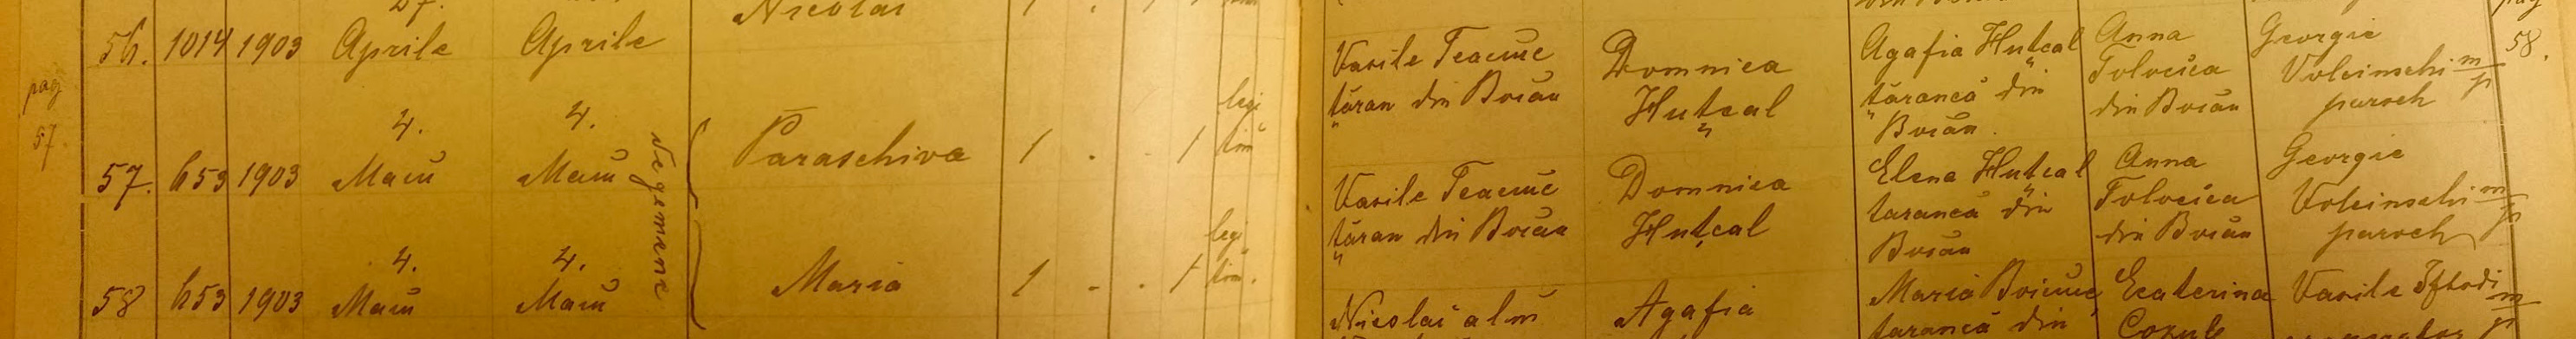 Nicolai
56. 1014 1903 Aprile Aprile
pag 57
4. 4.
57. 653 1903 Maiŭ Maiŭ Paraschiva 1 . . 1 legi tim
gemene
4. 4.
58 653 1903 Maiŭ Maiŭ Maria 1 . . 1 legi tim.
Vasile Teaciuc
țăran din Boian
Domnica
Huțcal
Agafia Huțcal
țărancă din
Boian.
Anna
Tolocica
din Boian
Georgie
Volcinschi m/p
paroch
pag
58.
Vasile Teaciuc
țăran din Boian
Domnica
Huțcal
Elena Huțcal
țarancă din
Boian
Anna
Tolocica
din Boian
Georgie
Volcinschi m/p
paroch
Nicolai alui
Agafia
Maria Boiciuc
țarancă din
Ecaterina
Vasile Iftodi m/p